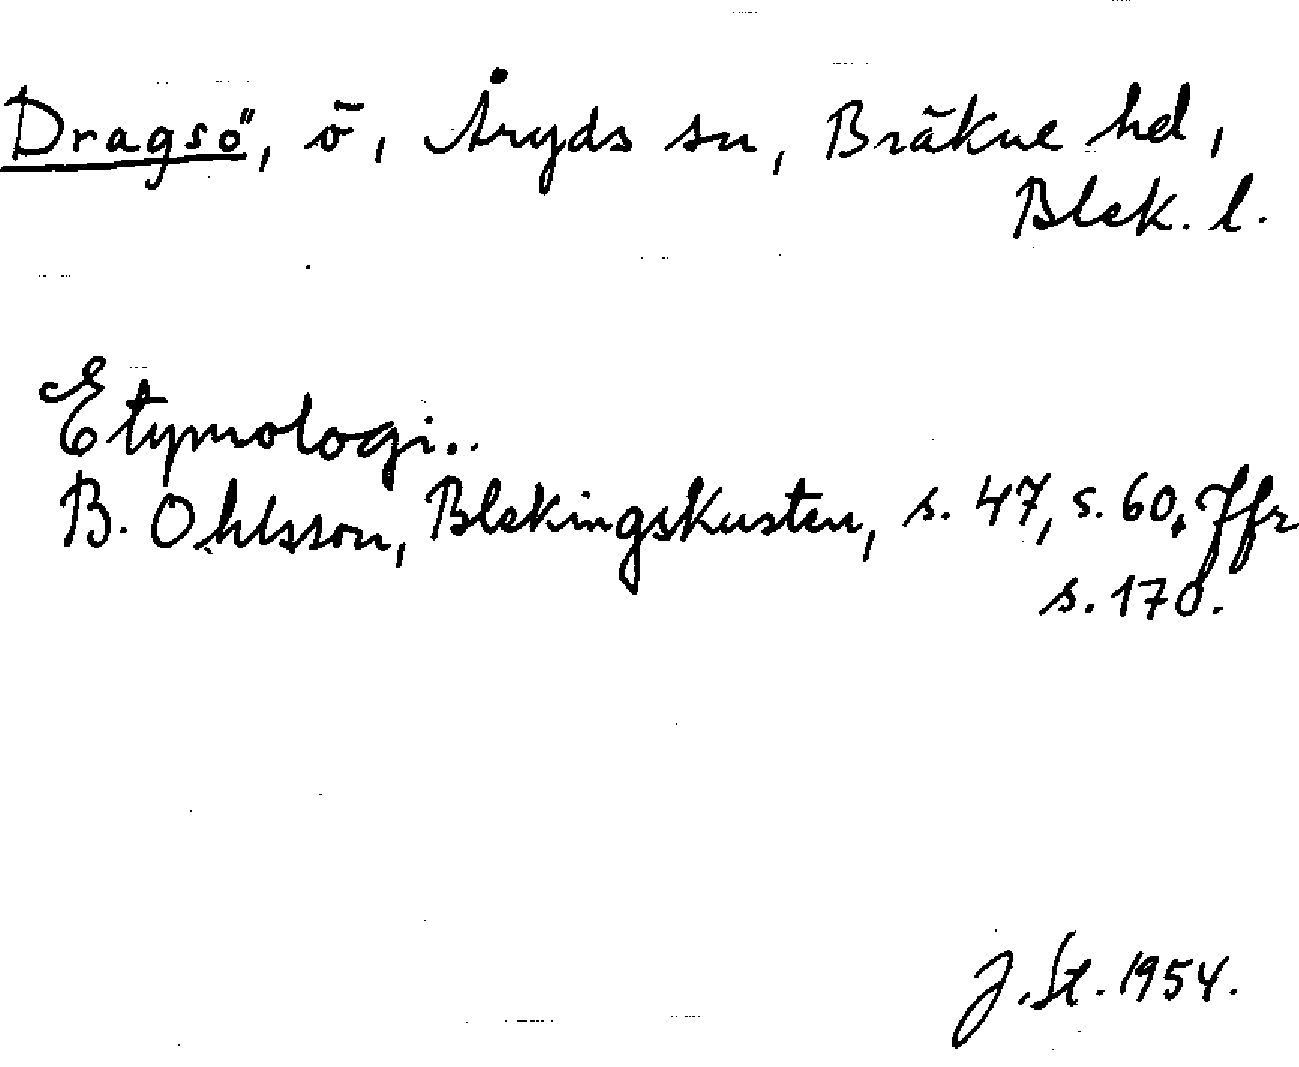 Dragsö, ö, Åryds sn, Bräkne hd,
Blek. l.
Etymologi..
B. Ohlsson, Blekingskusten, s. 47, s. 60. Jfr
s. 170.
J. St. 1954.